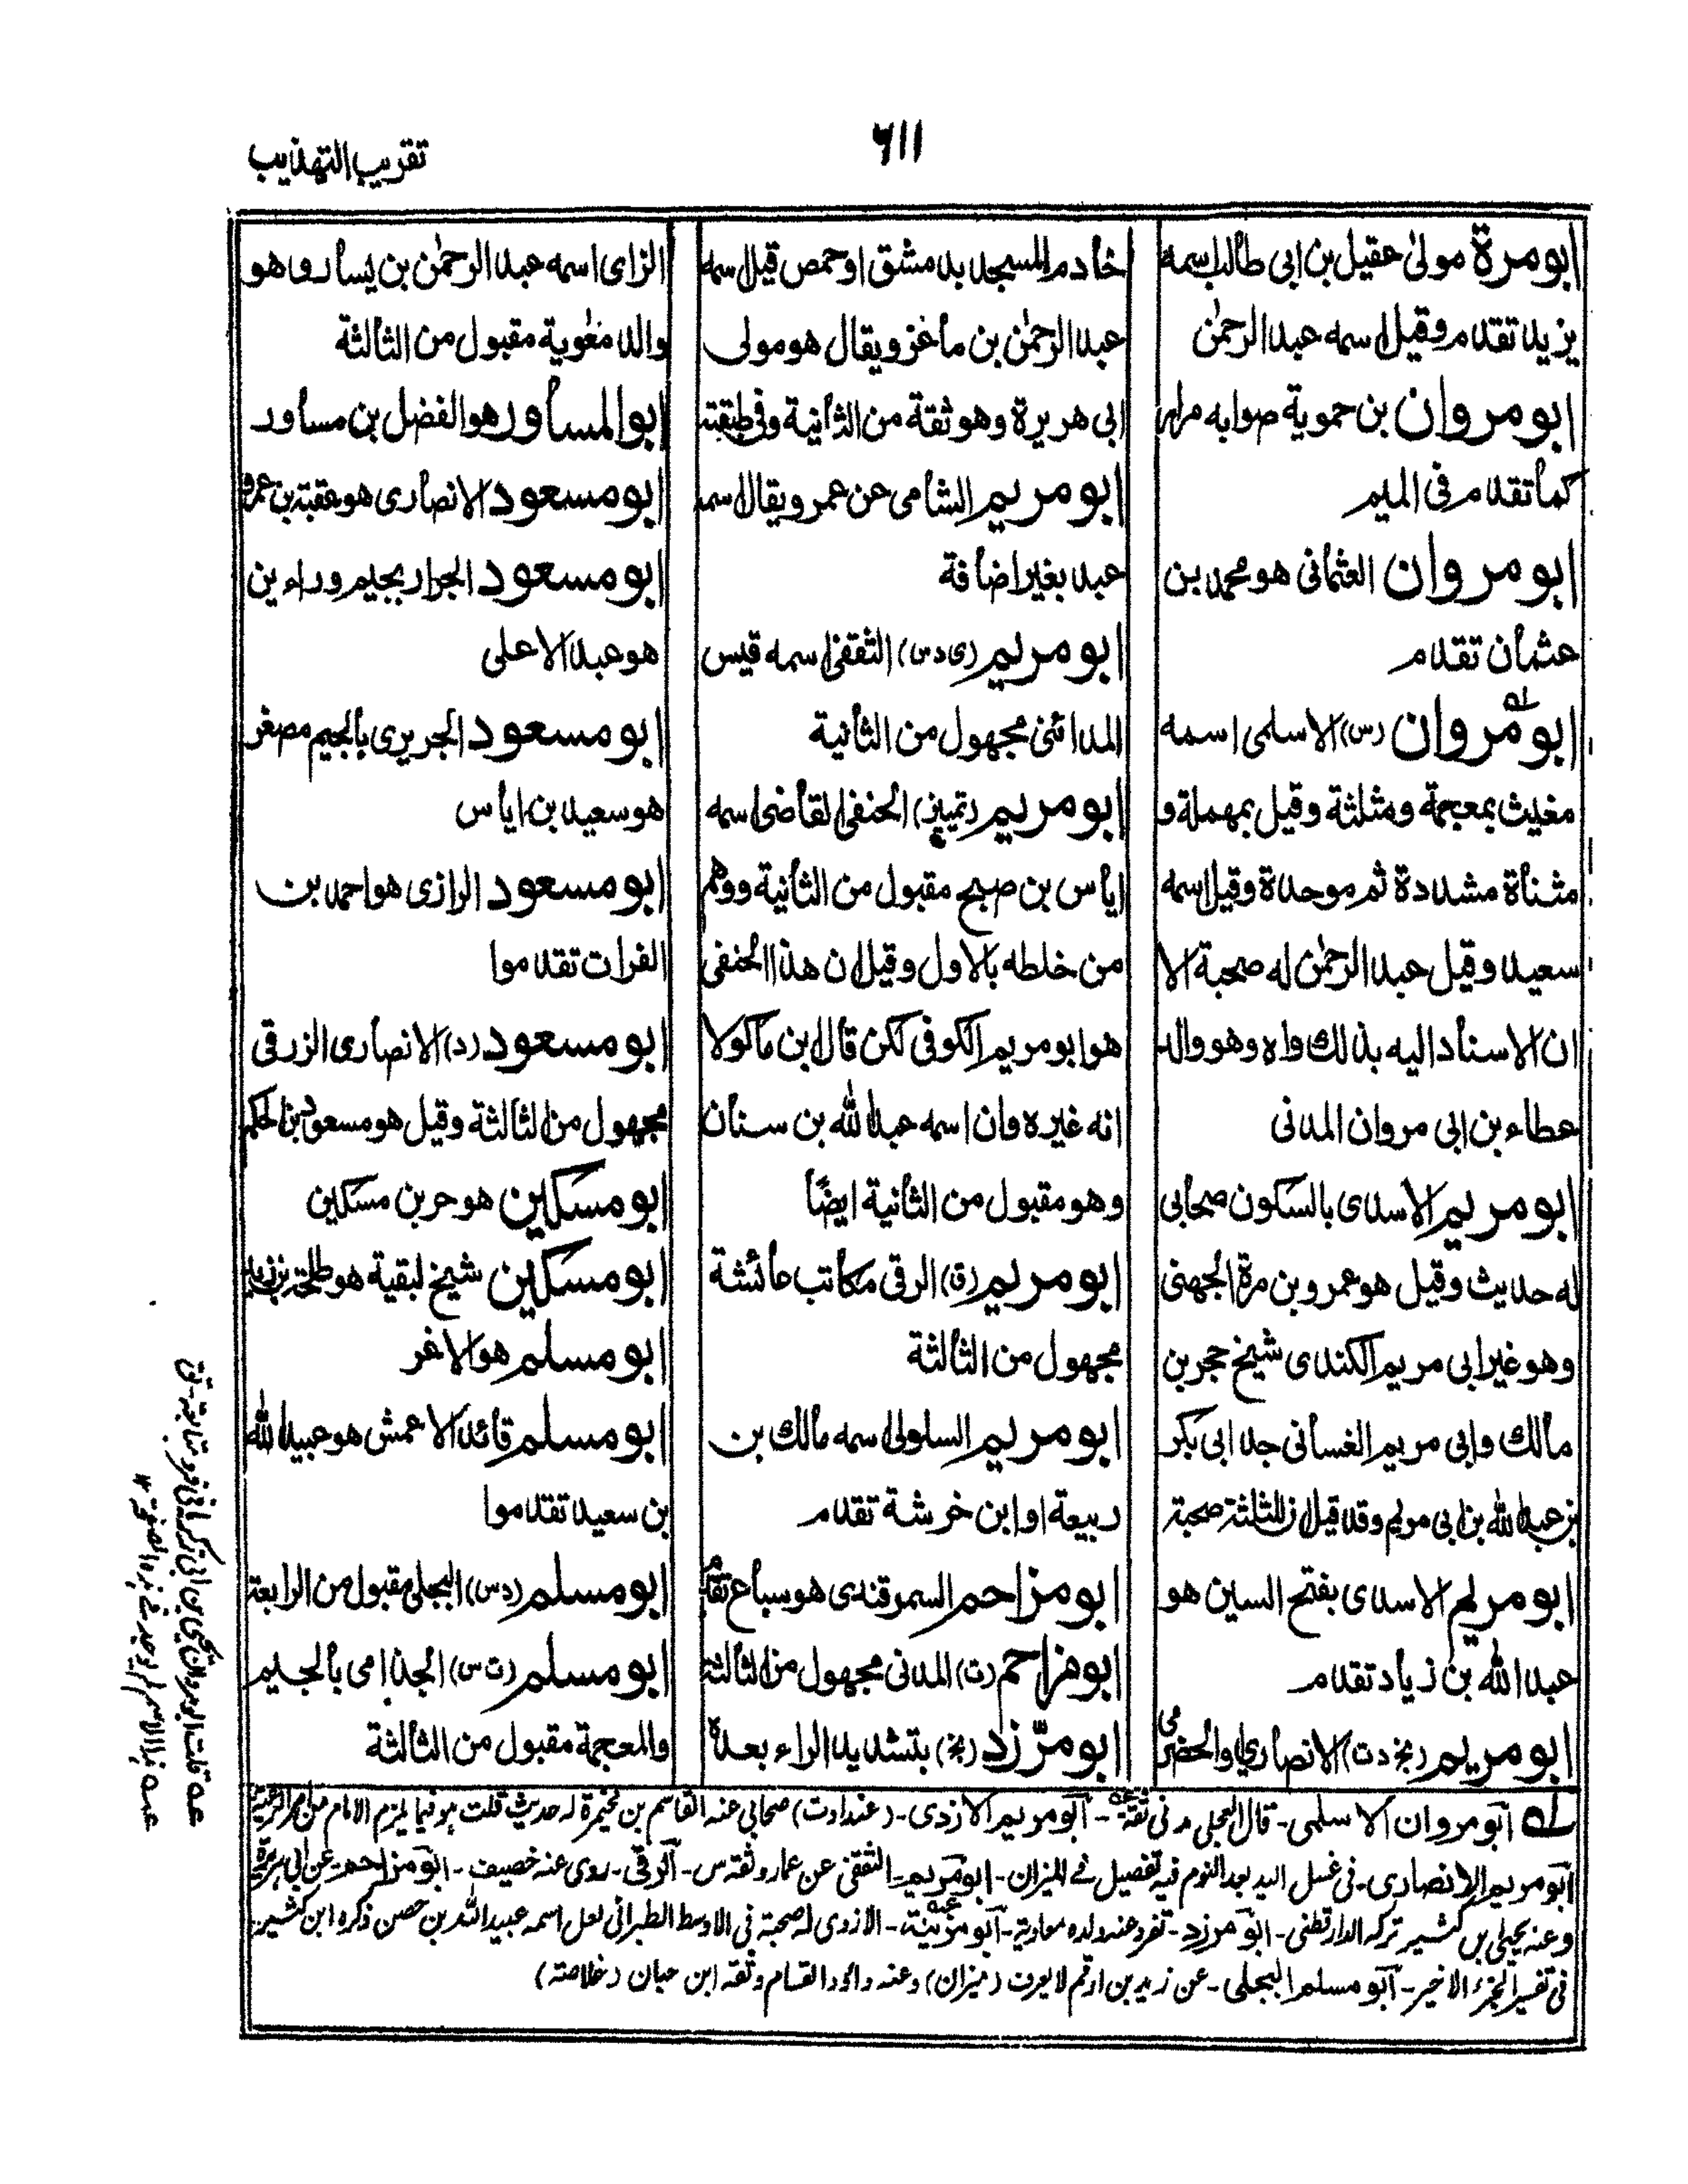 ٦١١
تقريب التهذيب
ابومرة مولىٰ عقيل بن ابى طالب اسمه
يزيد تقدم وقيل اسمه عبدالرحمٰن
ابو مروان بن حموية صوابه مرار
كما تقدم فى الميم
ابو مروان العثمانى هو محمد بن
عثمان تقدم
ابو مروان (س) الاسلمى اسمه
مغيث بمعجمة ومثلثة وقيل بمهملة و
مثناة مشددة ثم موحدة وقيل اسمه
سعيد وقيل عبدالرحمٰن له صحبة الا
ان الاسناد اليه بذلك واه وهو والد
عطاء بن ابى مروان المدنى
ابو مريم الاسدى بالسكون صحابى
له حديث وقيل هو عمرو بن مرة الجهنى
وهو غير ابى مريم الكندى شيخ حجر بن
مالك وابى مريم الغسانى جد ابى بكر
بن عبدالله بن ابى مريم وقد قيل ان للثلثة صحبة
ابو مريم الاسدى بفتح السين هو
عبدالله بن زياد تقدم
ابو مريم (بخ د ت) الانصارى او الحضرمى
خادم المسجد بدمشق او حمص قيل اسمه
عبدالرحمٰن بن ماعز ويقال هو مولى
ابى هريرة وهو ثقة من الثانية وفى طبقته
ابو مريم الشامى عن عمر ويقال اسمه
عبد بغير اضافة
ابو مريم (ى د س) الثقفى اسمه قيس
المدائنى مجهول من الثانية
ابو مريم (تمييز) الحنفى القاضى اسمه
اياس بن صبيح مقبول من الثانية ووهم
من خلطه بالاول وقيل ان هذا الحنفى
هو ابو مريم الكوفى لكن قال ابن ماكولا
انه غيره وان اسمه عبدالله بن سنان
وهو مقبول من الثانية ايضًا
ابو مريم (ق) الرقى مكاتب عائشة
مجهول من الثالثة
ابو مريم السلولى اسمه مالك بن
ربيعة او ابن خرشة تقدم
ابو مزاحم السمرقندى هو سباع تقدم
ابو مزاحم (ت) المدنى مجهول من الثالثة
ابو مزّرد (بخ) بتشديد الراء بعدها
الزاى اسمه عبدالرحمٰن بن يسار وهو
والد معٰوية مقبول من الثالثة
ابو المساور هو الفضل بن مساور
ابو مسعود الانصارى هو عقبة بن عمرو
ابو مسعود الجرار بجيم وراءين
هو عبدالاعلى
ابو مسعود الجريرى بالجيم مصغر
هو سعيد بن اياس
ابو مسعود الرازى هو احمد بن
الفرات تقدموا
ابو مسعود (د) الانصارى الزرقى
مجهول من الثالثة وقيل هو مسعود بن الحكم
ابو مسكين هو حر بن مسكين
ابو مسكين شيخ لبقية هو طلحة بن زيد
ابو مسلم هو الاغر
ابو مسلم قائد الاعمش هو عبيدالله
بن سعيد تقدموا
ابو مسلم (د س) البجلى مقبول من الرابعة
ابو مسلم (ت س) الجذامى بالجيم
والمعجمة مقبول من الثالثة
له ابو مروان الاسلمى - قال العجلى مدنى ثقة - ابو مريم الازدى - (عند ا د ت) صحابى عنه القاسم بن مخيمرة له حديث قلت هو فيما يلزم الامام من امر الرعية
ابو مريم الانصارى - فى غسل اليد بعد النوم فيه تفصيل فے الميزان - ابو مريم - الثقفى عن عمار وثقه س - الرقى - روى عنه خصيف - ابو مزاحم - عن ابى هريرة
وعنه يحيى بن كثير تركه الدارقطنى - ابو مزرد - تفرد عنه ولده معاوية - ابو مزينة - الازدى له صحبة فى الاوسط الطبرانى لعل اسمه عبيدالله بن حصن ذكره ابن كثير
فى تفسير الجزء الاخير - ابو مسلم البجلى - عن زيد بن ارقم لا يعرف (ميزان) وعنه داود القسام وثقه ابن حبان (خلاصة)